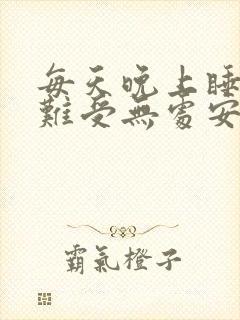 每天晚上睡
難受無處安
霸氣橙子